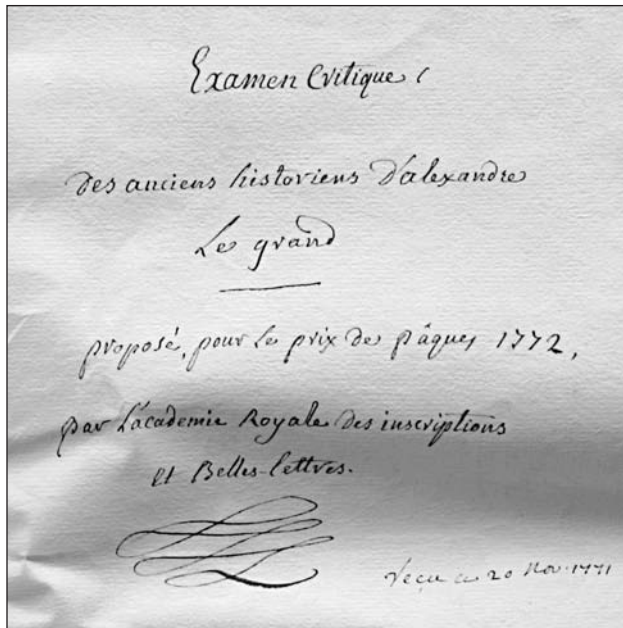 Examen Critique
des anciens historiens d'alexandre
Le grand
proposé, pour le prix de pâques 1772,
par L'academie Royale des inscriptions
et Belles-lettres.
reçu ce 20 Nov. 1771